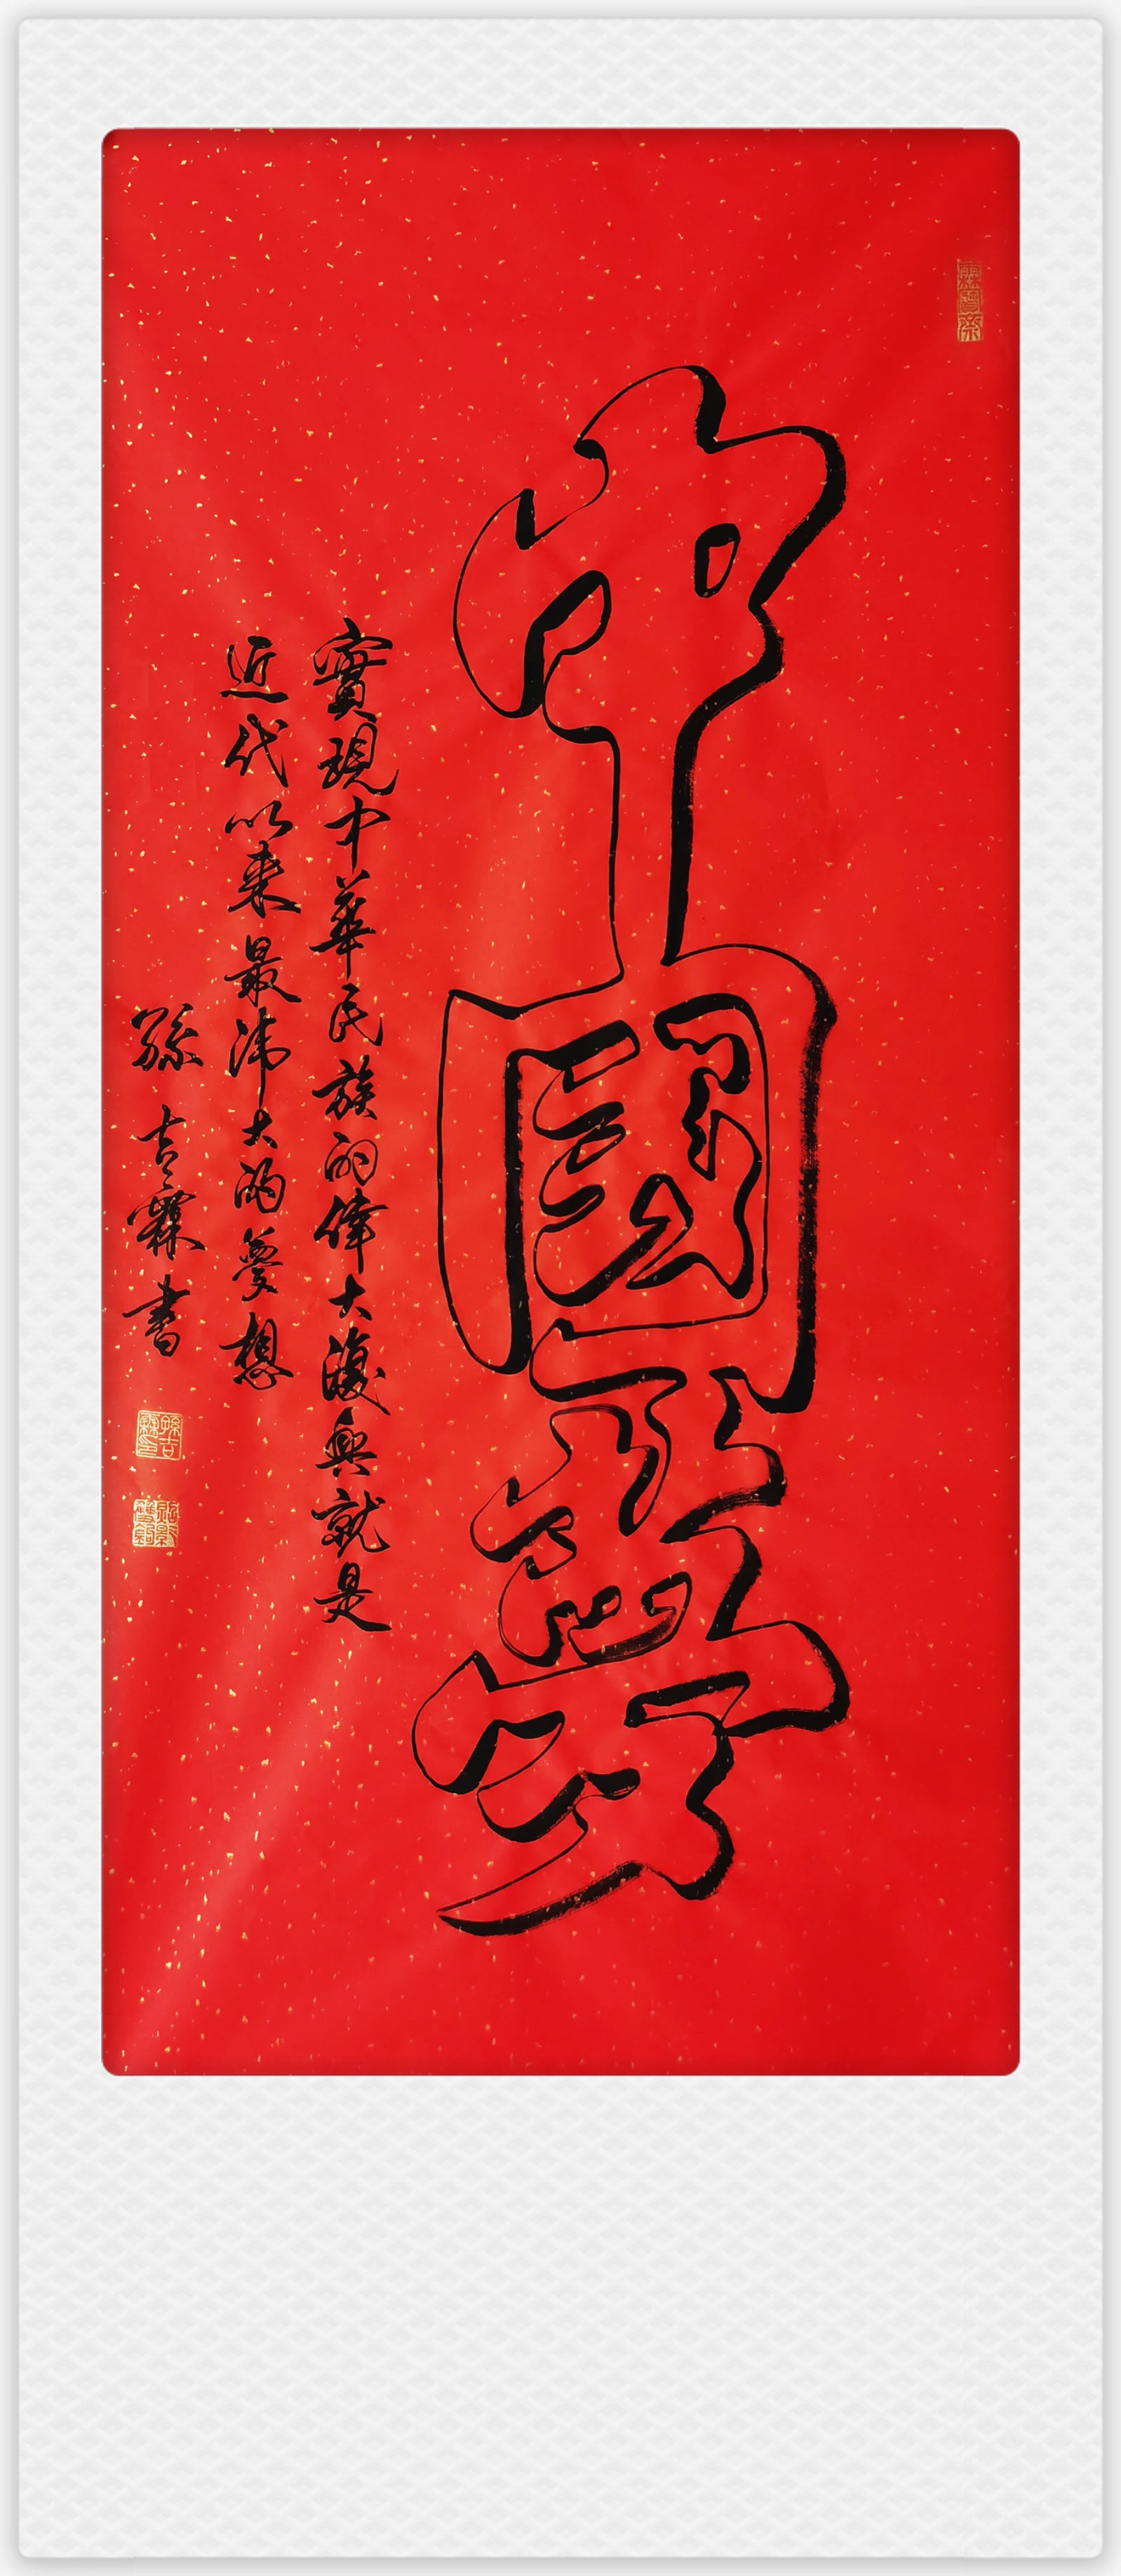 中國夢
實現中華民族的偉大復興就是
近代以来最偉大的夢想
孫吉霖書
孫吉霖印